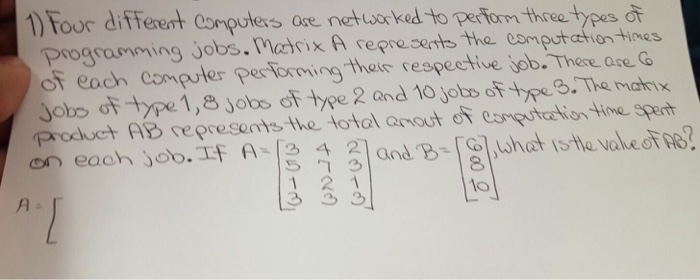 1) Four different computers are networked to perform three types of
programming jobs. Matrix A represents the computation times
of each computer performing their respective job. There are 6
jobs of type 1, 8 jobs of type 2 and 10 jobs of type 3. The matrix
product AB represents the total amout of computation time spent
on each job. If A = [3 4 2 and B = [6], what is the value of AB?
5 7 3 8
1 2 1 10
3 3 3]
A = [